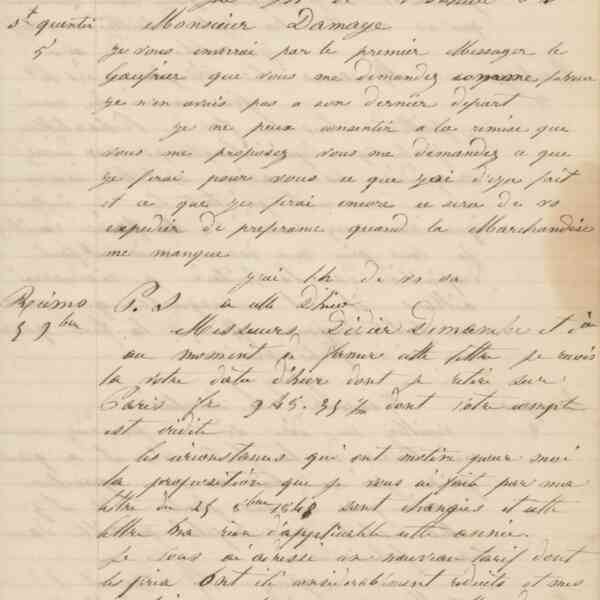 St quentin Monsieur Damaye
5 Je vous enverrai par le premier Messager le
Gaufrier que vous me demandez comme
je n'en avais pas a son dernier départ
Je ne peux consentir a la remise que
vous me proposez vous me demandez ce que
je ferai pour vous ce que j'ai deja fait
et ce que je ferai encore ce sera de vs
expedier de preference quand la Marchandise
me manque
j'ai lh de vs sa
Reims P. S a cette D'hier
5 9bre Messieurs Didier Dimanche et
au moment de fermer cette lettre je reçois
la votre datée d'hier dont je retire sur
Paris fr 945.35 dont votre compte
est crédité
les circonstances qui ont motivé pour moi
la proposition que je vous ai fait par ma
lettre du 25 1848 sont changées et cette
lettre n'a rien d'applicable cette année.
Je vous ai adressé un nouveau tarif dont
les prix ont été considérablement réduits et mes